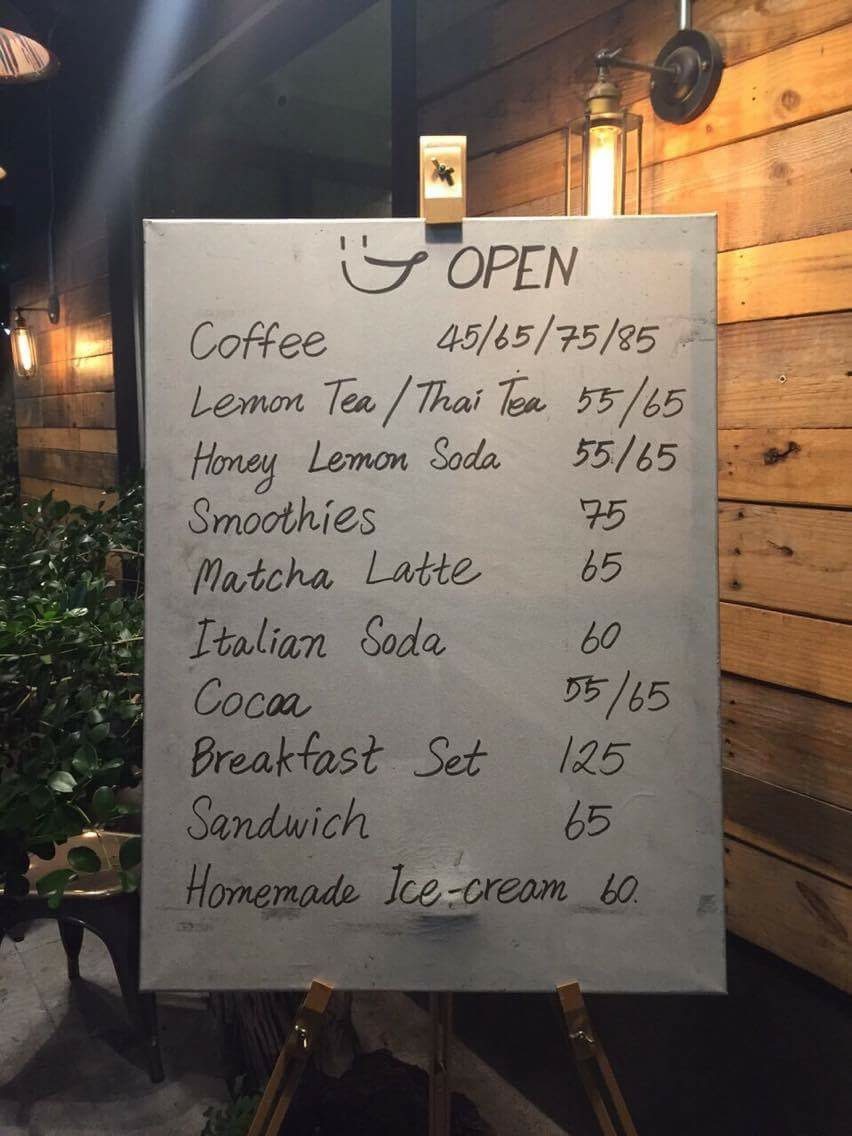 OPEN
Coffee 45/65/75/85
Lemon Tea / Thai Tea 55/65
Honey Lemon Soda 55/65
Smoothies 75
Matcha Latte 65
Italian Soda 60
Cocoa 55/65
Breakfast Set 125
Sandwich 65
Homemade Ice-cream 60.